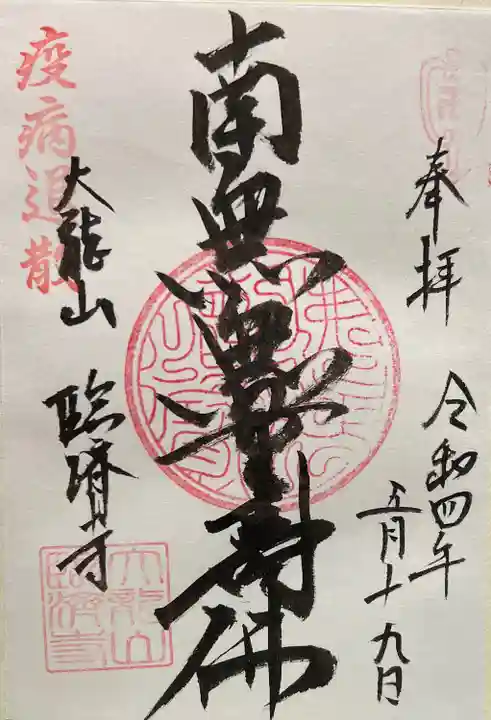 奉拝
令和四年
五月十九日
南無無量壽佛
疫病退散
大龍山
臨済寺
大龍山
臨済寺